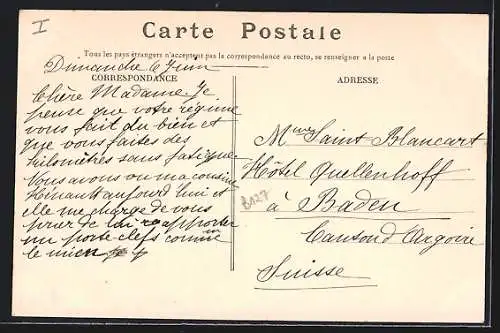 I
Carte Postale
Tous les pays étrangers n'acceptent pas la correspondance au recto, se renseigner a la poste
Dimanche 6 Juin
CORRESPONDANCE
ADRESSE
Chère Madame. Je
pense que votre régime
vous fait du bien et
que vous faites des
kilomètres sans fatigue
Vous avons vu ma cousine
Hénault aujourd'hui et
elle me charge de vous
prier de lui rapporter
un porte-clefs comme
le mien
Mme Saint Blancart
Hôtel Quellenhoff
à Baden
Canton d'Argovie
Suisse
B127